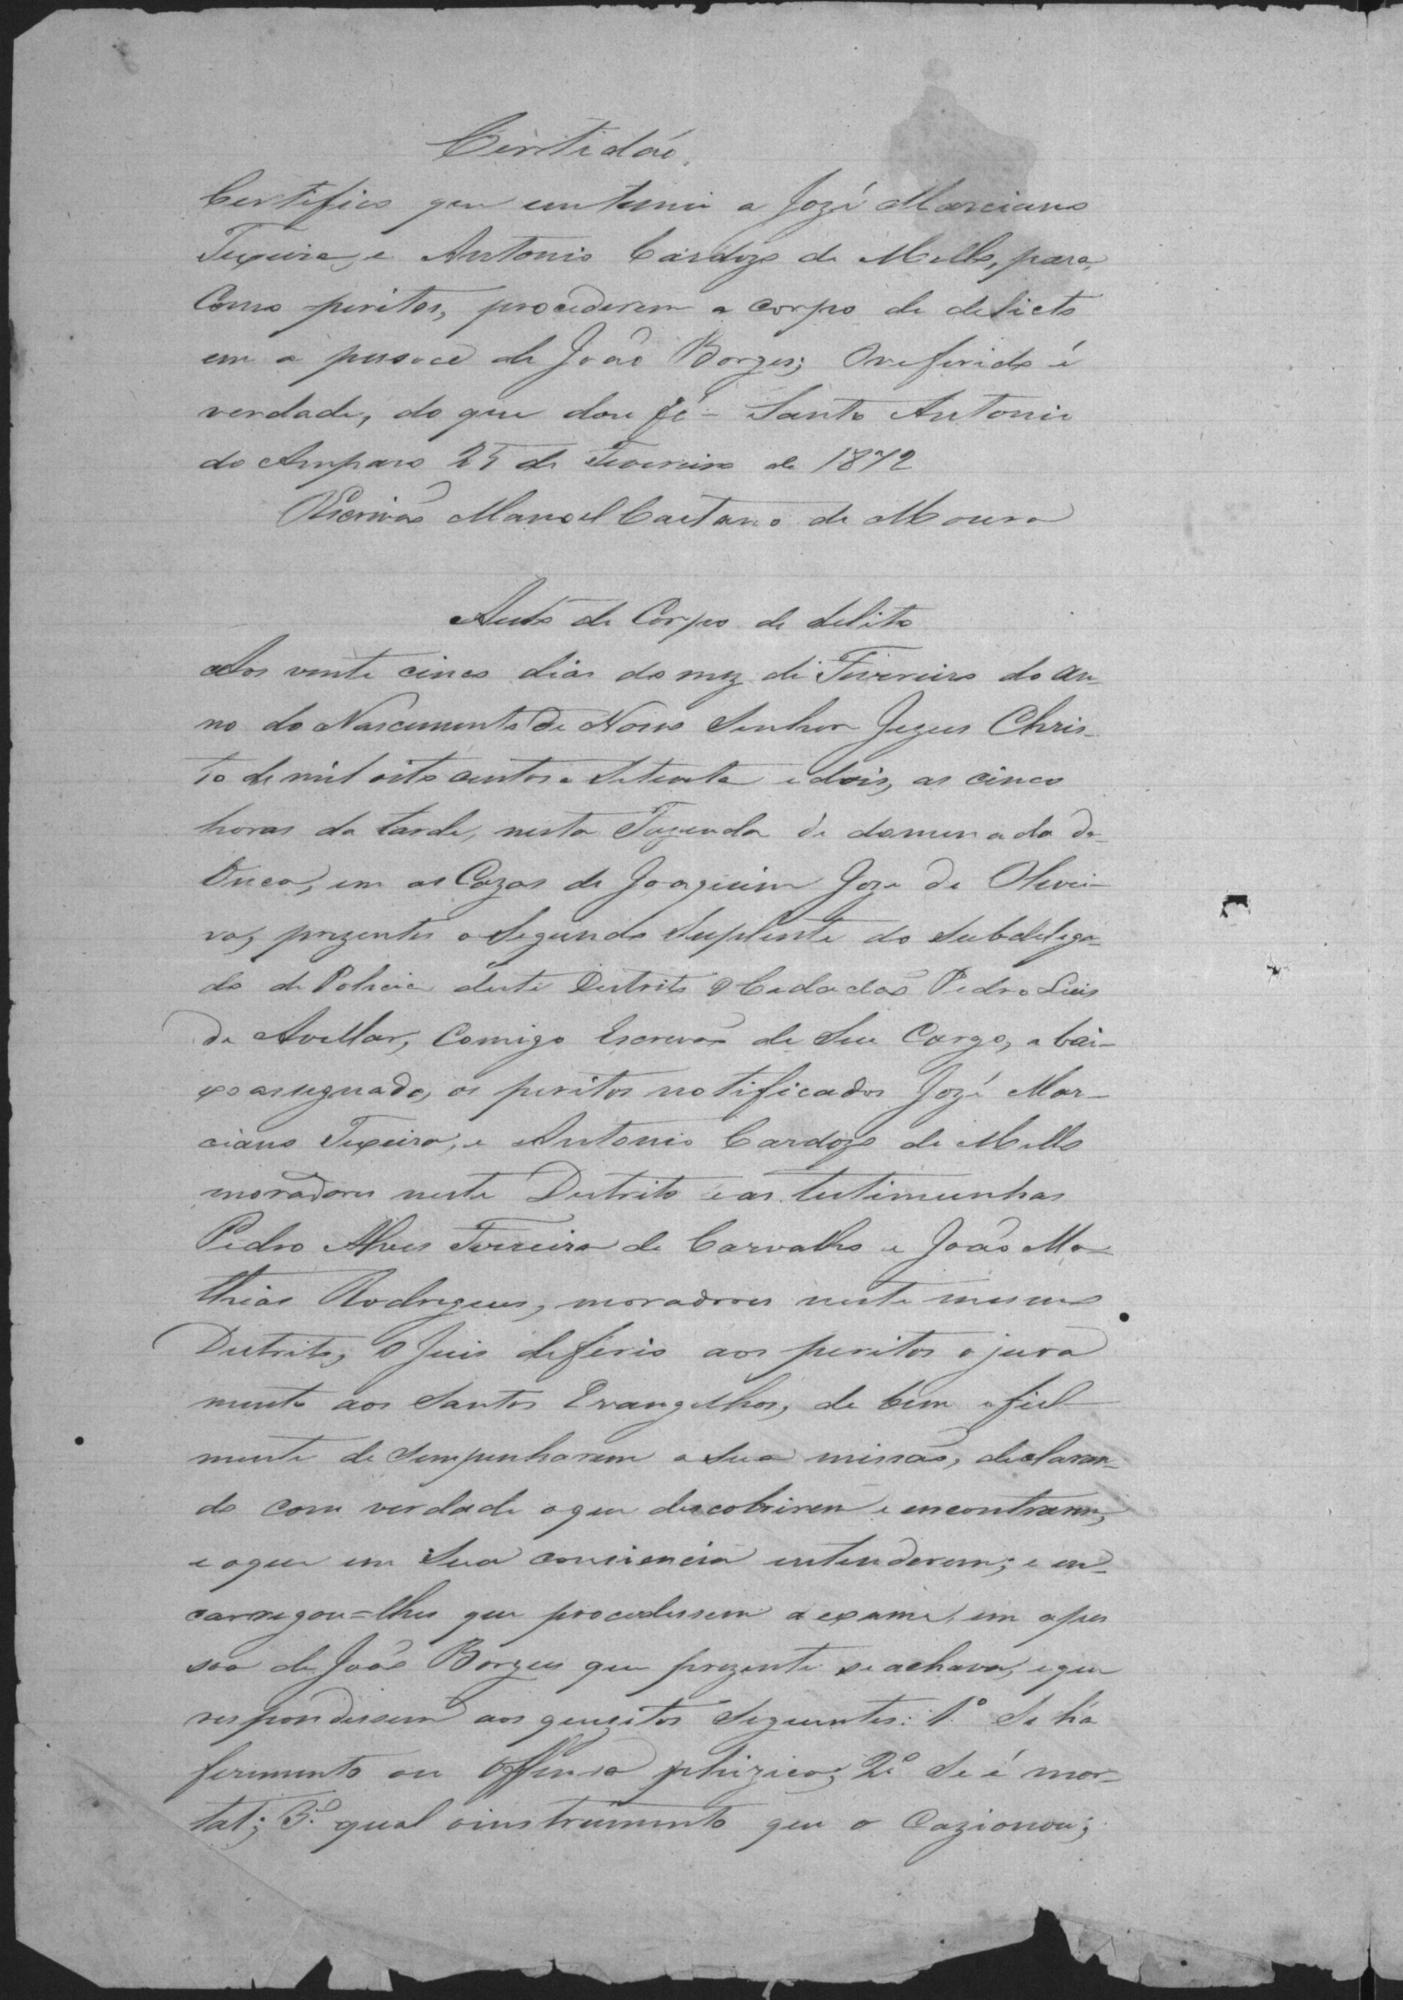 Certidão.
Certifico que emtemei a Jozé Marciano
Texeira, e Antonio Cardozo de Mello, para,
Como peritos, procederem a corpo de delicto
em a pesoce de João Borges; O referido é
verdade, do que dou fé - Santo Antonio
do Amparo 25 de Fevereiro de 1872
O Escrivão Manoel Caetano de Moura
Auto de Corpo de delito
Aos vinte cinco dias do mez de Fevereiro do an-
no do Nascimento De Nosso Senhor Jezus Chris-
to de mil oito centos e Setenta e dois, as cinco
horas da tarde, nesta Fazenda de dominada da
Onca, em as Cazas de Joaquim Joze de Olivei-
ra, prezentes o Segundo Suplente do Subdelega-
do de Policia deste Destrito o Cidadão Pedro Luis
de Avellar, Comigo Escrevão de Seu Cargo, a bai-
xo assignado, os peritos notificados Jozé Mar-
ciano Texeira, e Antonio Cardozo de Mello
moradores neste Destrito e as testimunhas
Pedro Alves Ferreira de Carvalho e João Ma-
thias Rodrigues, moradores neste mesmo
Destrito, O Juis deferio aos peritos o jura
mento aos Santos Evangelhos, de bem e fiel-
mente de Sempenharem a Sua missão, declaran-
do com verdade o que descobrirem e encontrarem,
e o que em Sua consiencia entenderem; e en-
carregou=lhes que procedessem a exame, em a pes
soa de João Borges que prezente se achava, e que
respondessem aos quesitos Seguintes: 1º Se há
ferimento ou offensa phizica; 2º Se é mor-
tal; 3º qual o instrumento que o Cazionou;